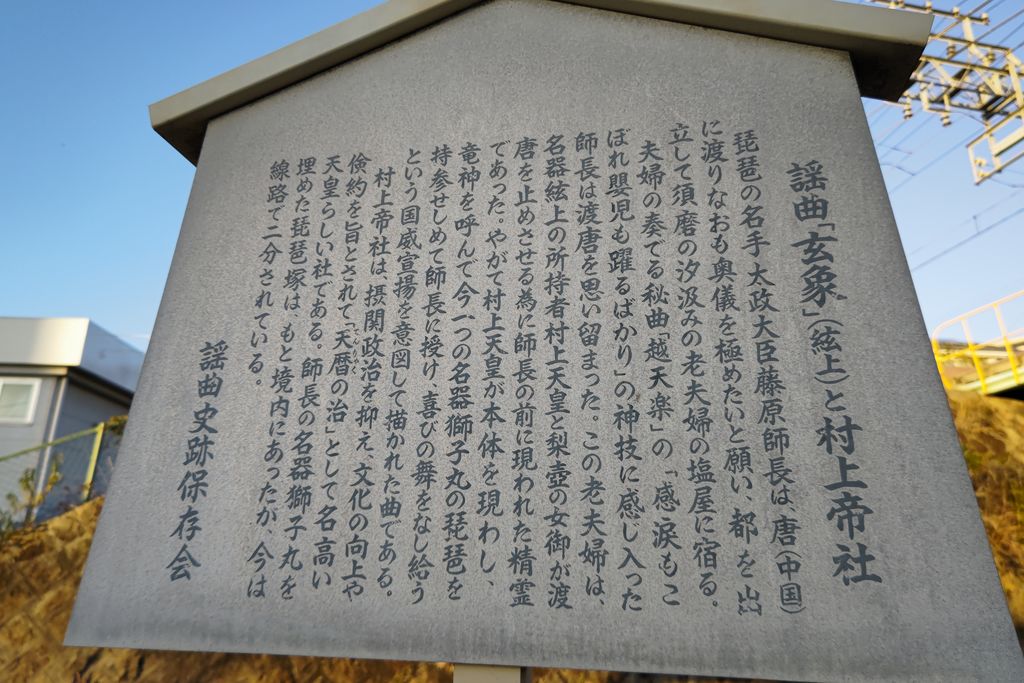 謡曲「玄象」（絃上）と村上帝社
琵琶の名手太政大臣藤原師長は、唐（中国）
に渡りなおも奥儀を極めたいと願い、都を出
立して須磨の汐汲みの老夫婦の塩屋に宿る。
夫婦の奏でる秘曲「越天楽」の「感涙もこ
ぼれ嬰児も躍るばかり」の神技に感じ入った
師長は渡唐を思い留まった。この老夫婦は、
名器絃上の所持者村上天皇と梨壺の女御が渡
唐を止めさせる為に師長の前に現われた精霊
であった。やがて村上天皇が本体を現わし、
竜神を呼んで今一つの名器獅子丸の琵琶を
持参せしめて師長に授け、喜びの舞をなし給う
という国威宣揚を意図して描かれた曲である。
村上帝社は、摂関政治を抑え、文化の向上や
倹約を旨とされて「天暦の治」として名高い
てんりゃく
天皇らしい社である。師長の名器獅子丸を
埋めた琵琶塚は、もと境内にあったが、今は
線路で二分されている。
謡曲史跡保存会